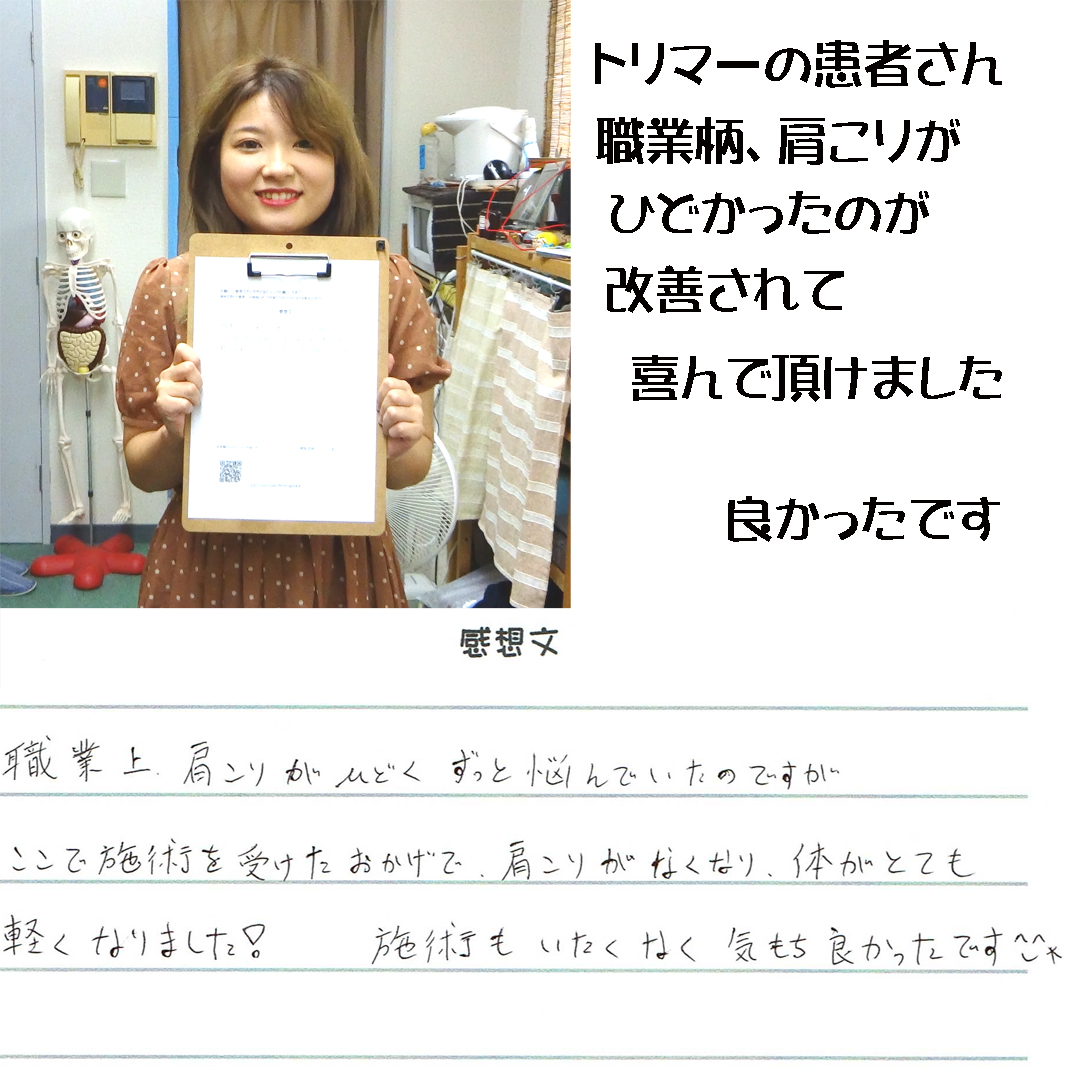 トリマーの患者さん
職業柄、肩こりが
ひどかったのが
改善されて
喜んで頂けました
良かったです
感想文
職業上、肩こりがひどくずっと悩んでいたのですが
ここで施術を受けたおかげで、肩こりがなくなり、体がとても
軽くなりました! 施術もいたくなく気もち良かったです^^*